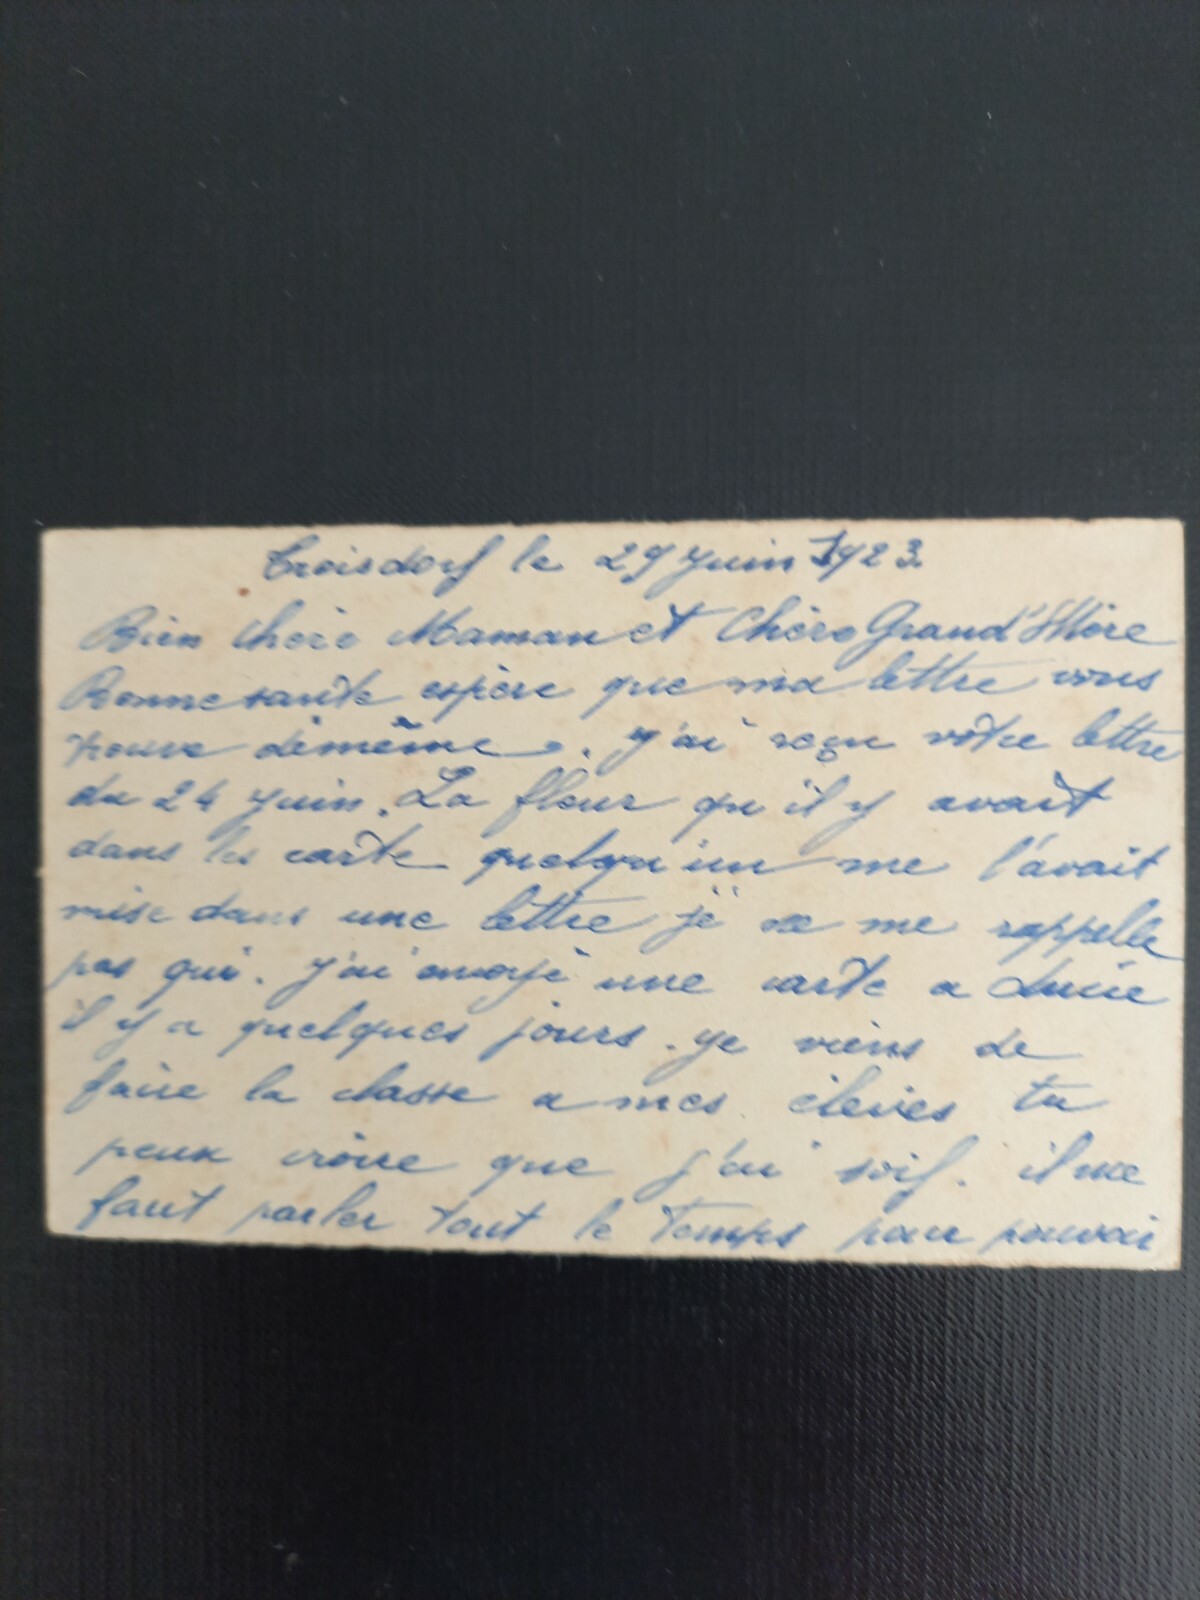 Troisdorf le 29 Juin 1923
Bien chère Maman et Chère Grand'Mère
Bonne sante espère que ma lettre vous
trouve dêmême. J'ai reçu vôtre lettre
du 24 Juin. La fleur qu'il y avait
dans les carte quelqu'un me l'avait
mise dans une lettre je ne me rappelle
pas qui. J'ai envoyé une carte a Lucie
il y a quelques jours. Je viens de
faire la classe a mes élèves tu
peux croire que j'ai soif. il me
faut parler tout le temps pour pouvoir